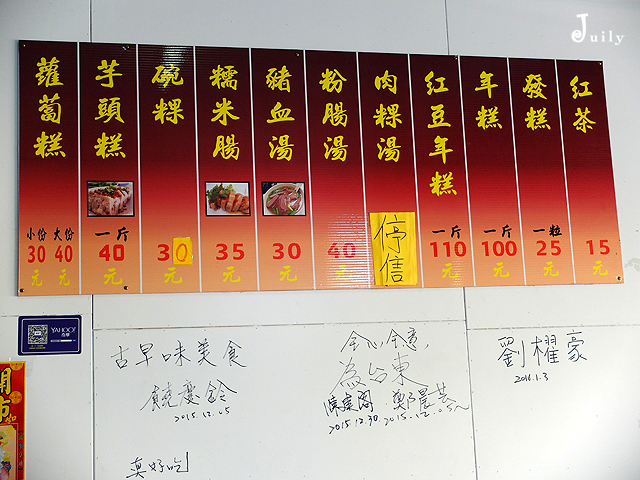 Juily
蘿蔔糕
小份 大份
30 40
元 元
芋頭糕
一斤
40
元
碗粿
30
元
糯米腸
35
元
豬血湯
30
元
粉腸湯
40
元
肉粿湯
停售
紅豆年糕
一斤
110
元
年糕
一斤
100
元
發糕
一粒
25
元
紅茶
15
元
YAHOO!
古早味美食
饒慶鈴
2015.12.05
真好吃
全心全意,
為台東
2015.12.30
劉櫂豪
2016.1.3